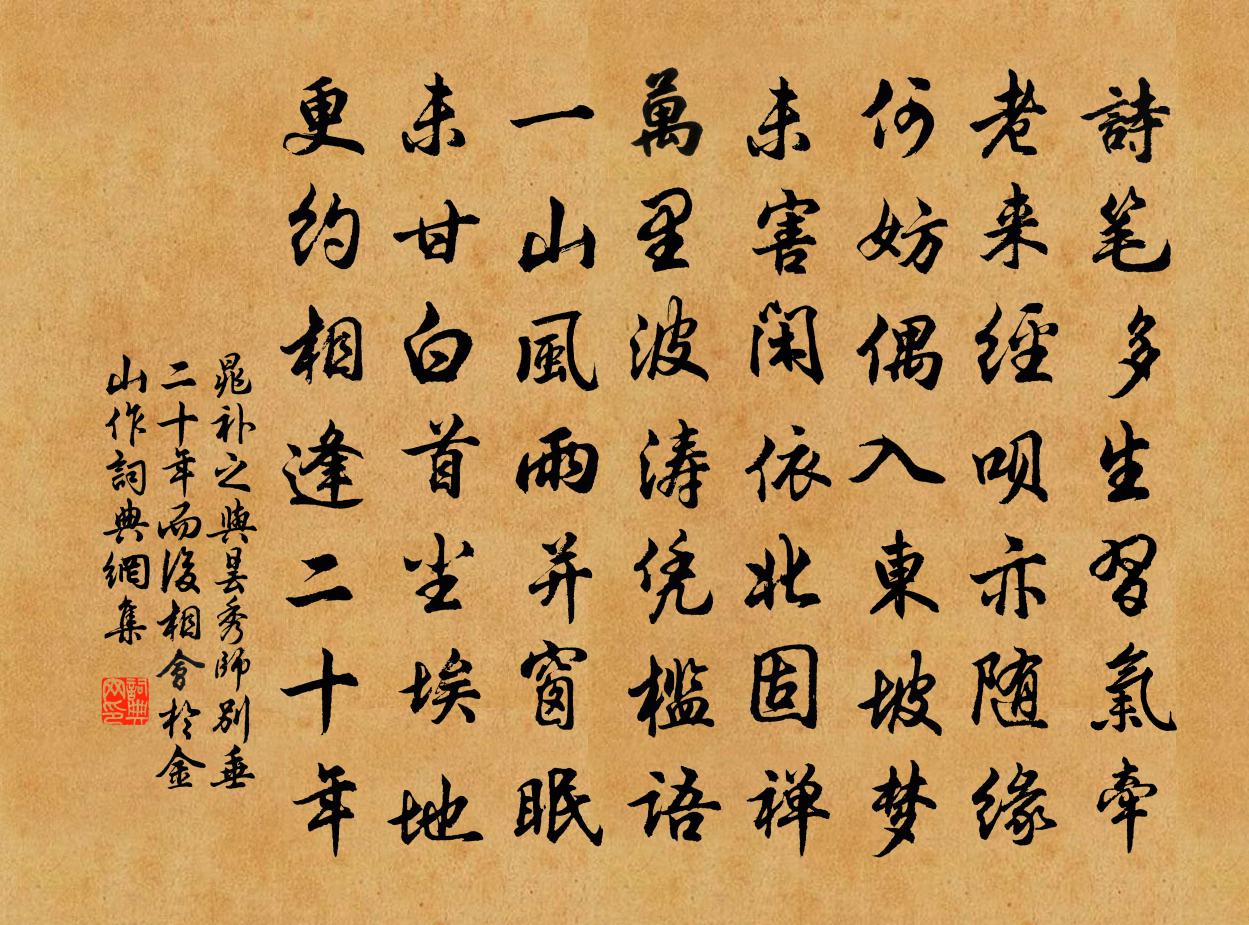 詩笔多生習氣牽
老来經呗亦随緣
何妨偶入東坡梦
未害閑依北固禅
萬里波涛凭槛語
一山風雨并窗眠
未甘白首尘埃地
更約相逢二十年
晁补之與昙秀師别垂
二十年而後相會於金
山作詞典網集
詞典网印